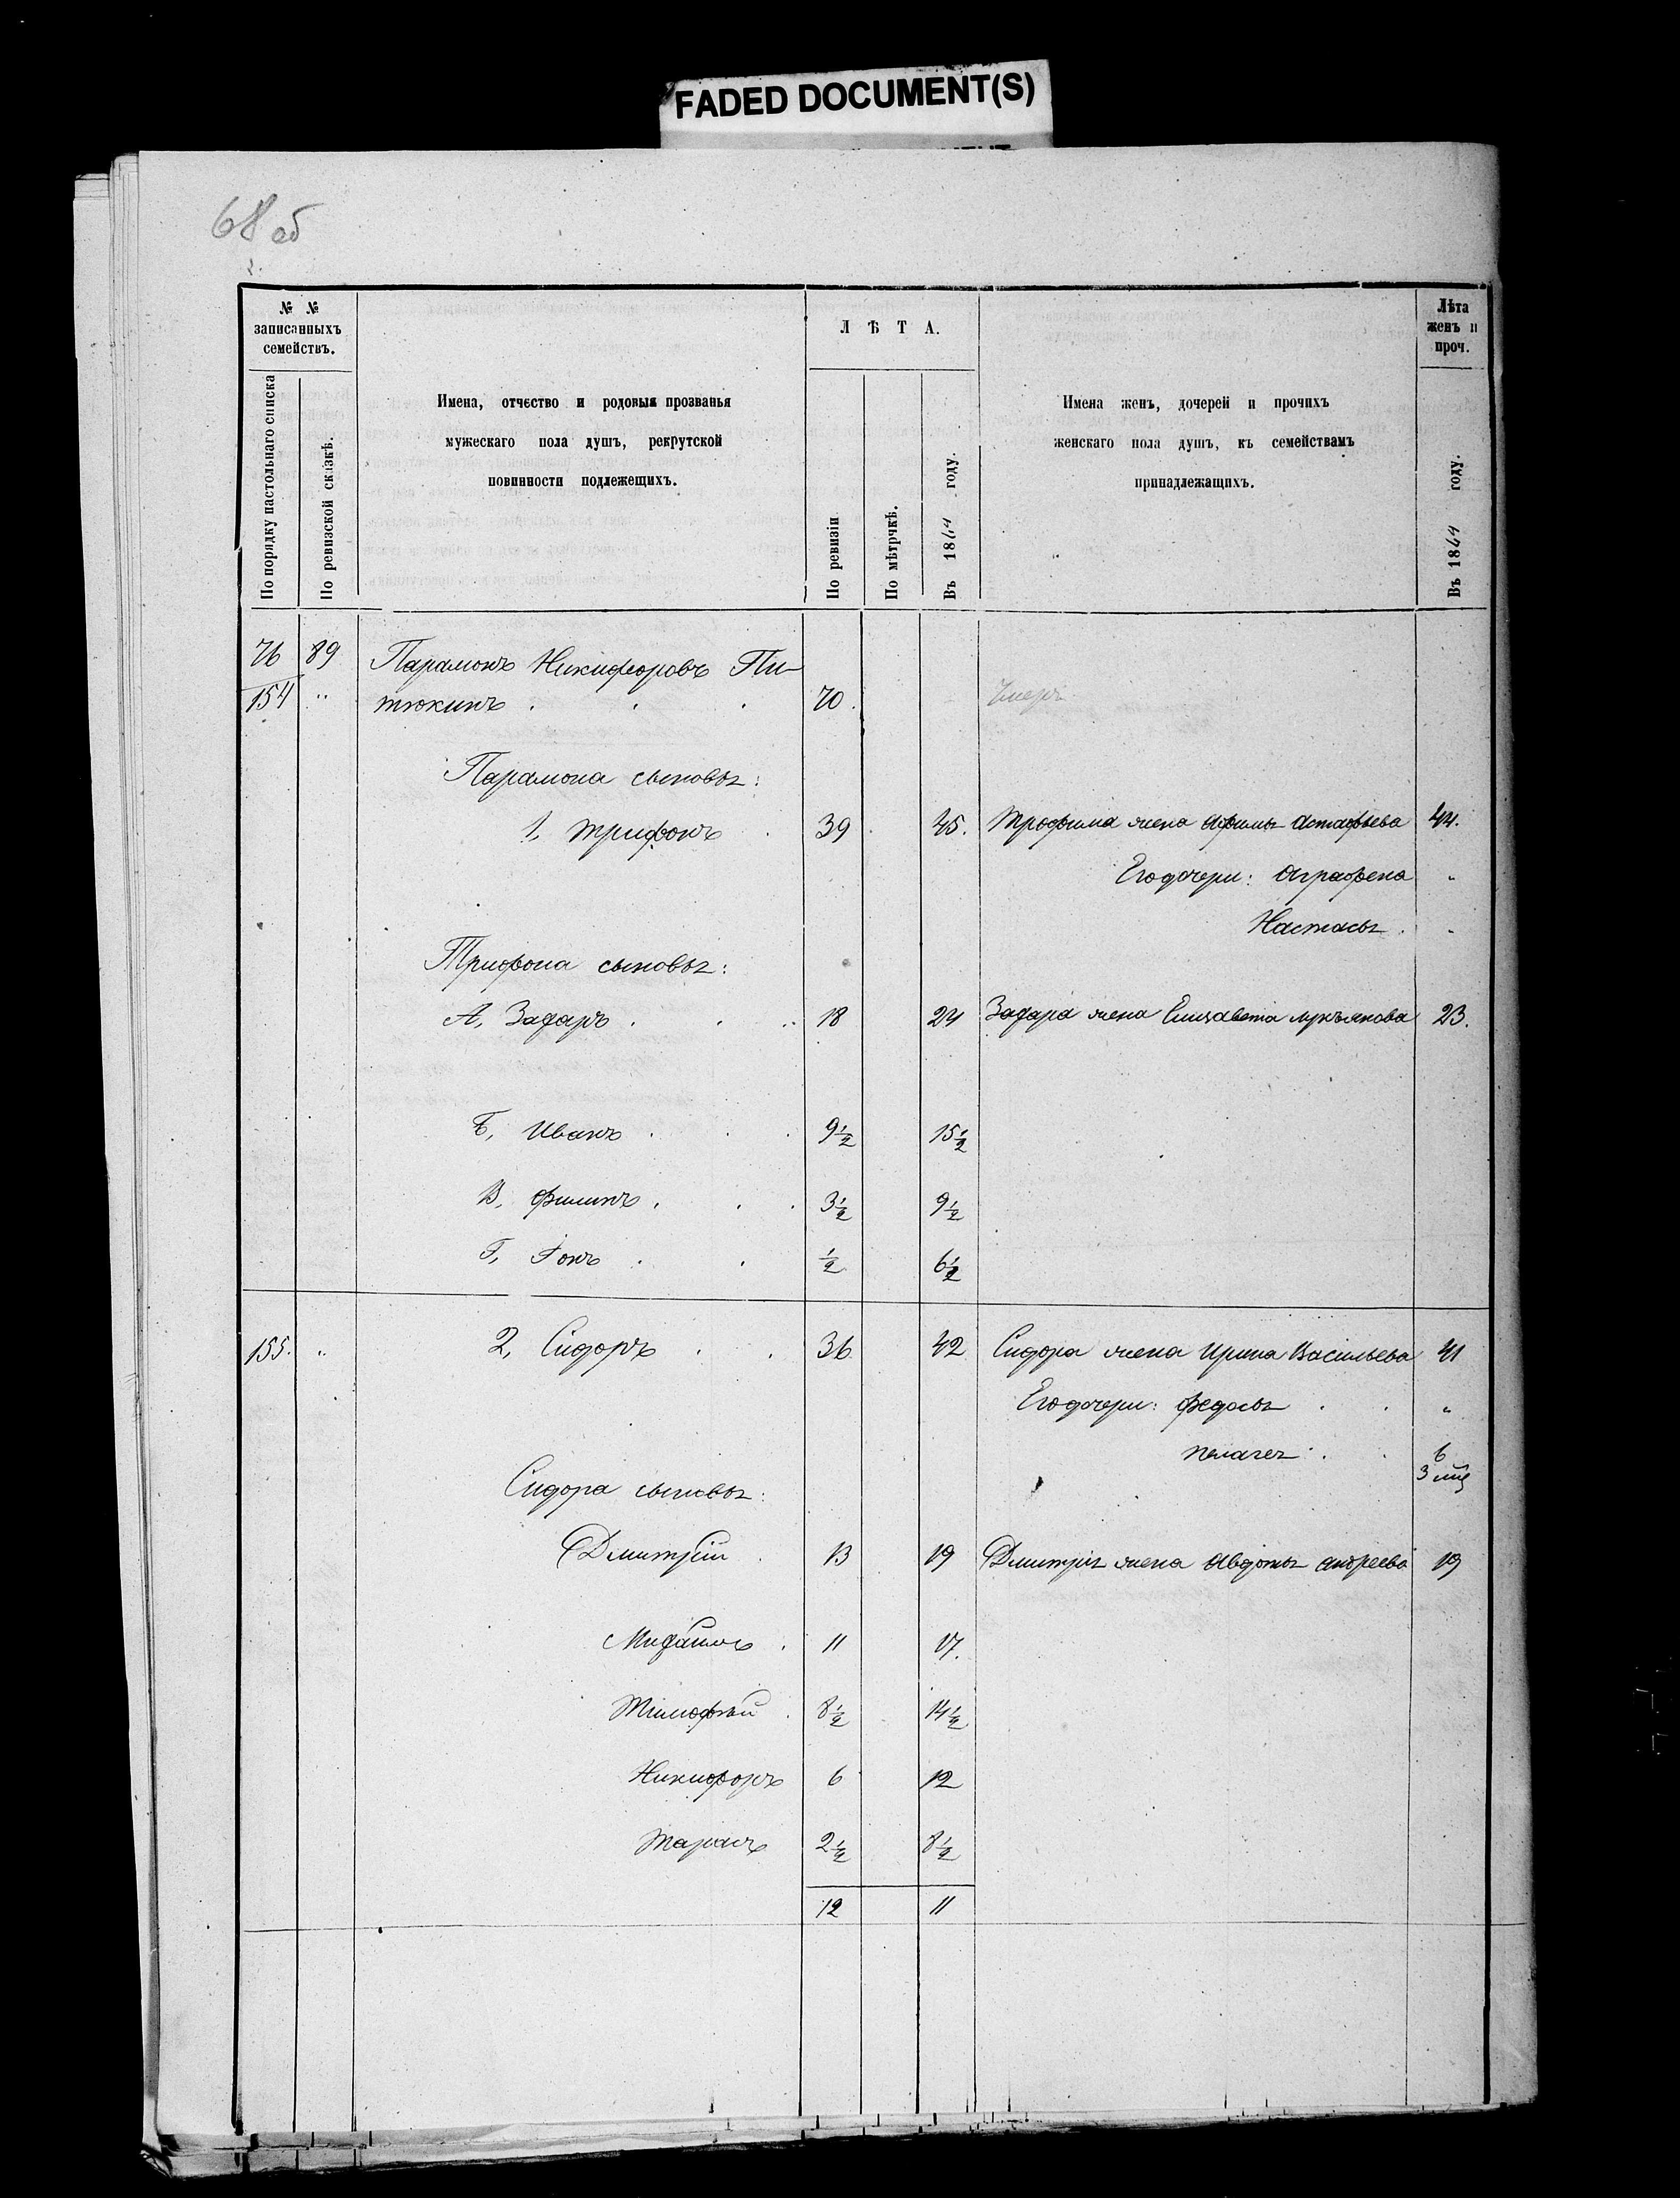 FADED DOCUMENT(S)
68 об
№ №
записанныхъ
семействъ.
По порядку настольнаго списка
По ревизской сказкѣ.
Имена, отчество и родовыя прозванья
мужескаго пола душъ, рекрутской
повинности подлежещихъ.
ЛѢТА.
По ревизіи
По мѣтрчкѣ.
Въ 1864 году.
Имена женъ, дочерей и прочихъ
женскаго пола душъ, къ семействамъ
принадлежащихъ.
Лѣта
женъ и
проч.
Въ 1864 году.
76 89 Парамонъ Никифоровъ Пи-
154 " тюкинъ . . . 70. Умеръ
Парамона сыновья:
1, Трифонъ . 39 45. Трофима жена Афимья Астафьева 44.
Его дочери: Аграфена "
Настасья . "
Трифона сыновья:
А, Захаръ . . . 18 24 Захара жена Елизавета Лукъянова 23.
Б, Иванъ . . . 9½ 15½
В, Филипъ . . . 3½ 9½
Г, Фокъ . . ½ 6½
155. " 2, Сидоръ . . 36 42 Сидора жена Ирина Васильева 41
Его дочери: Федосья . . "
Пелагея . . 6
3 мѣс
Сидора сыновья:
Дмитрій . 13 19 Дмитрія жена Авдотья Андреева 19
Михайло . 11 17.
Тимофѣй . 8½ 14½
Никифоръ 6 12
Тарасъ 2½ 8½
12 11